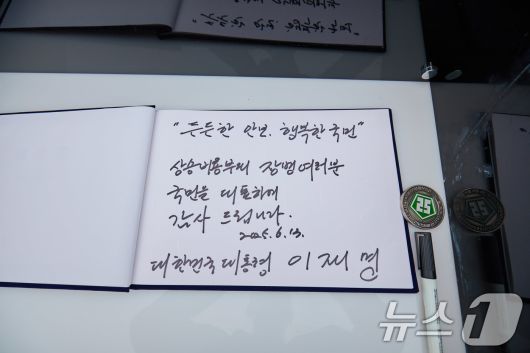 "든든한 안보, 행복한 국민"
상승비룡부대 장병 여러분
국민을 대표하여
감사 드립니다.
2025. 6. 13.
대한민국 대통령 이재명
25
뉴스1